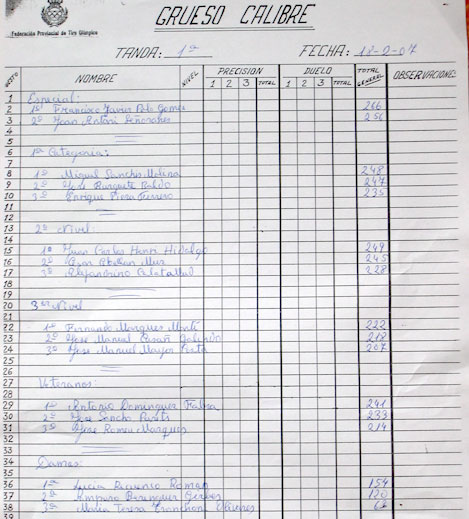 GRUESO CALIBRE
Federación Provincial de Tiro Olímpico
TANDA: 1ª FECHA: 18-2-07
PUESTO NOMBRE NIVEL PRECISION DUELO TOTAL GENERAL OBSERVACIONES
1 2 3 TOTAL 1 2 3 TOTAL
1 Especial:
2 1º Francisco Javier Polo Gomes 266
3 2º Juan Antoni Señorares 256
4
5
6 1ª Categoria:
7
8 1º Miguel Sanchis Molina 248
9 2º José Burguete Baldo 247
10 3º Enrique Piera Ferrero 235
11
12
13 2º Nivel:
14
15 1º Juan Carlos Hidalgo 249
16 2º Mur 245
17 3º Alejandrino Calatallud 228
18
19
20 3er Nivel
21
22 1º Fernando Marques Monti 222
23 2º Jose Manuel 218
24 3º Jose Manuel Mayor 207
25
26
27 Veteranos:
28
29 1º Antonio Dominguez 241
30 2º Jose Sancho 233
31 3º Jose Roma Marques 214
32
33
34 Damas:
35
36 1ª Lucia Recuenco Roman 154
37 2ª Amparo Berenguer 120
38 3ª Maria Teresa Olivares
39